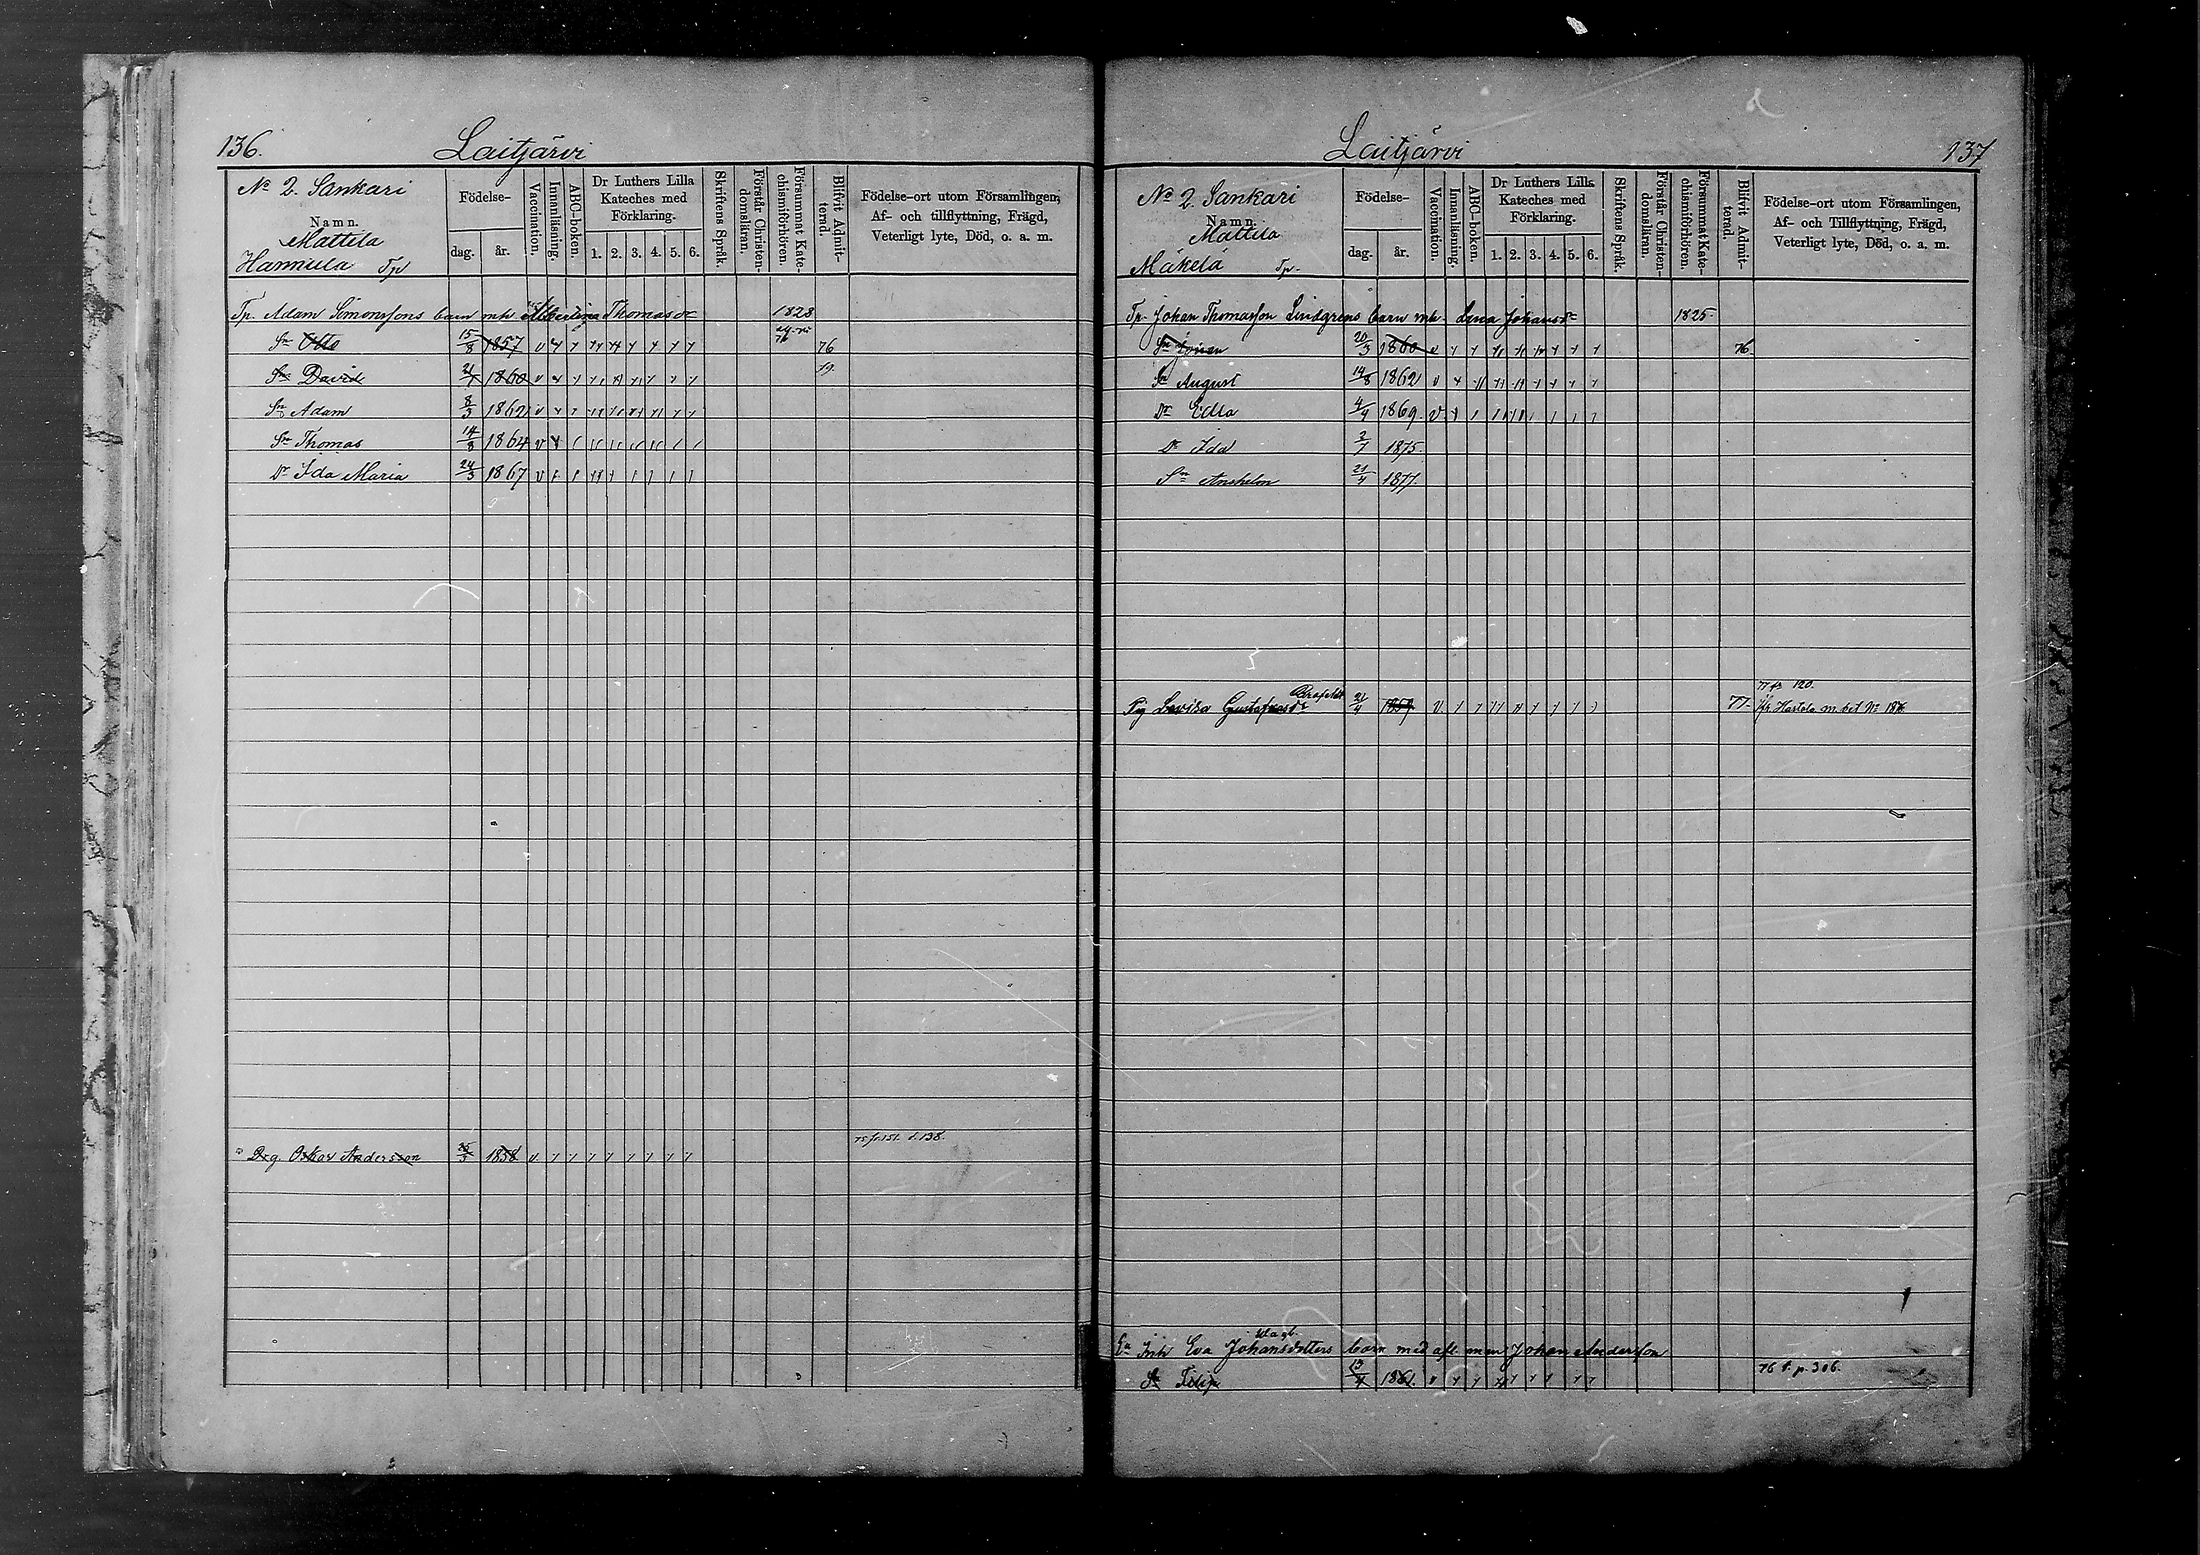 136.
Laitjärvi
No 2. Sankari
Namn.
Mattila
Hannula Tp
Födelse-
dag.
år.
Vaccination.
Innanläsning.
ABC-boken.
Dr Luthers Lilla
Kateches med
Förklaring.
1. 2. 3. 4. 5. 6.
Skriftens Språk.
Förstår Christen-
domsläran.
Försummat Kate-
chismiförhören.
Blifvit Admit-
terad.
Födelse-ort utom Församlingen,
Af- och tillflyttning, Frägd,
Veterligt lyte, Död, o. a. m.
Tp. Adam Simonssons barn mh Thomasdr 1828
Sn Otto 15/8 1857 v 76
76
Sn David 21/1 1860 v 79.
Sn Adam 8/3 1862 v
Sn Thomas 14/8 1864 v
Dr Ida Maria 24/3 1867 v
75 fr. 151. t. 138.
Drg. Oskar Andersson 26/3 1858 v
137
Laitjärvi
No 2. Sankari
Namn.
Mattila
Mäkelä Tp.
Födelse-
dag.
år.
Vaccination.
Innanläsning.
ABC-boken.
Dr Luthers Lilla
Kateches med
Förklaring.
1. 2. 3. 4. 5. 6.
Skriftens Språk.
Förstår Christen-
domsläran.
Försummat Kate-
chismiförhören.
Blifvit Admit-
terad.
Födelse-ort utom Församlingen,
Af- och Tillflyttning, Frägd,
Veterligt lyte, Död, o. a. m.
Tp. Johan Thomasson Lindgrens barn mh. Lena Johansdr 1825.
Sn Johan 20/3 1860 v 76.
Sn August 14/8 1862 v
Dr Edla 4/4 1869. v
Dr Ida 2/7 1875.
Sn Anshelm 21/4 1877.
77 fr 120.
Pig Lovisa Gustafsdr 21/4 1859 v 77. Hartola m. bet No
Enk Eva Johansdotters barn med afl. man Johan Andersson
Sn Filip 13/4 1861. v 76 t. p. 306.